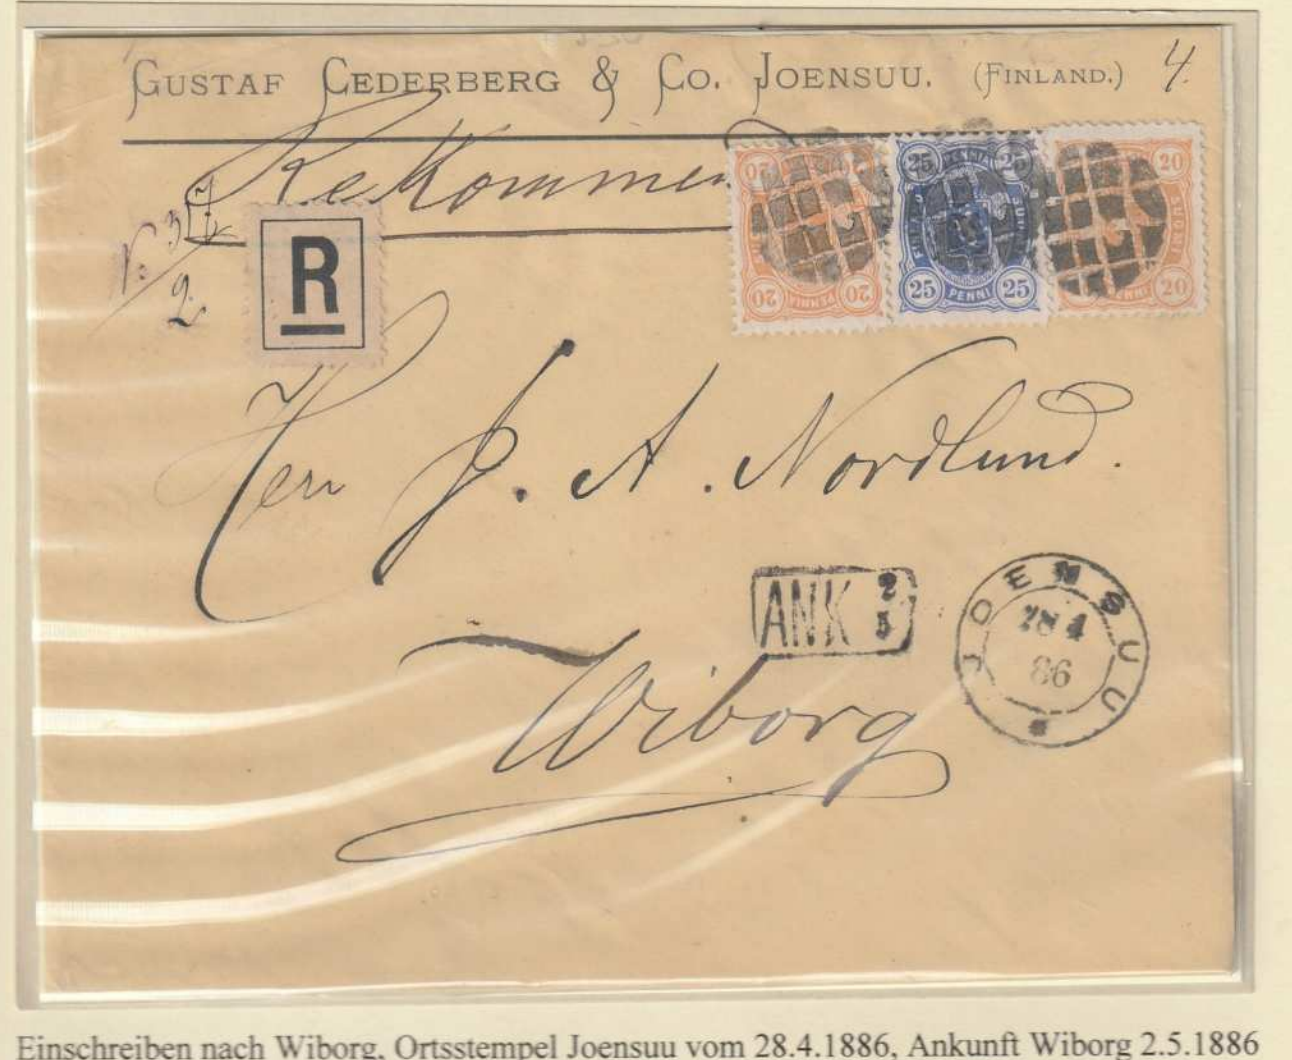 GUSTAF CEDERBERG & CO. JOENSUU. (FINLAND.) 4.
Rekommen
R
2
20 20 20 PENNIÄ 20
25 25 25 PENNIÄ 25
20 20
Herr J. A. Nordlund.
ANK 2 5
JOENSUU
28 4
86
Wiborg
Einschreiben nach Wiborg, Ortsstempel Joensuu vom 28.4.1886, Ankunft Wiborg 2.5.1886